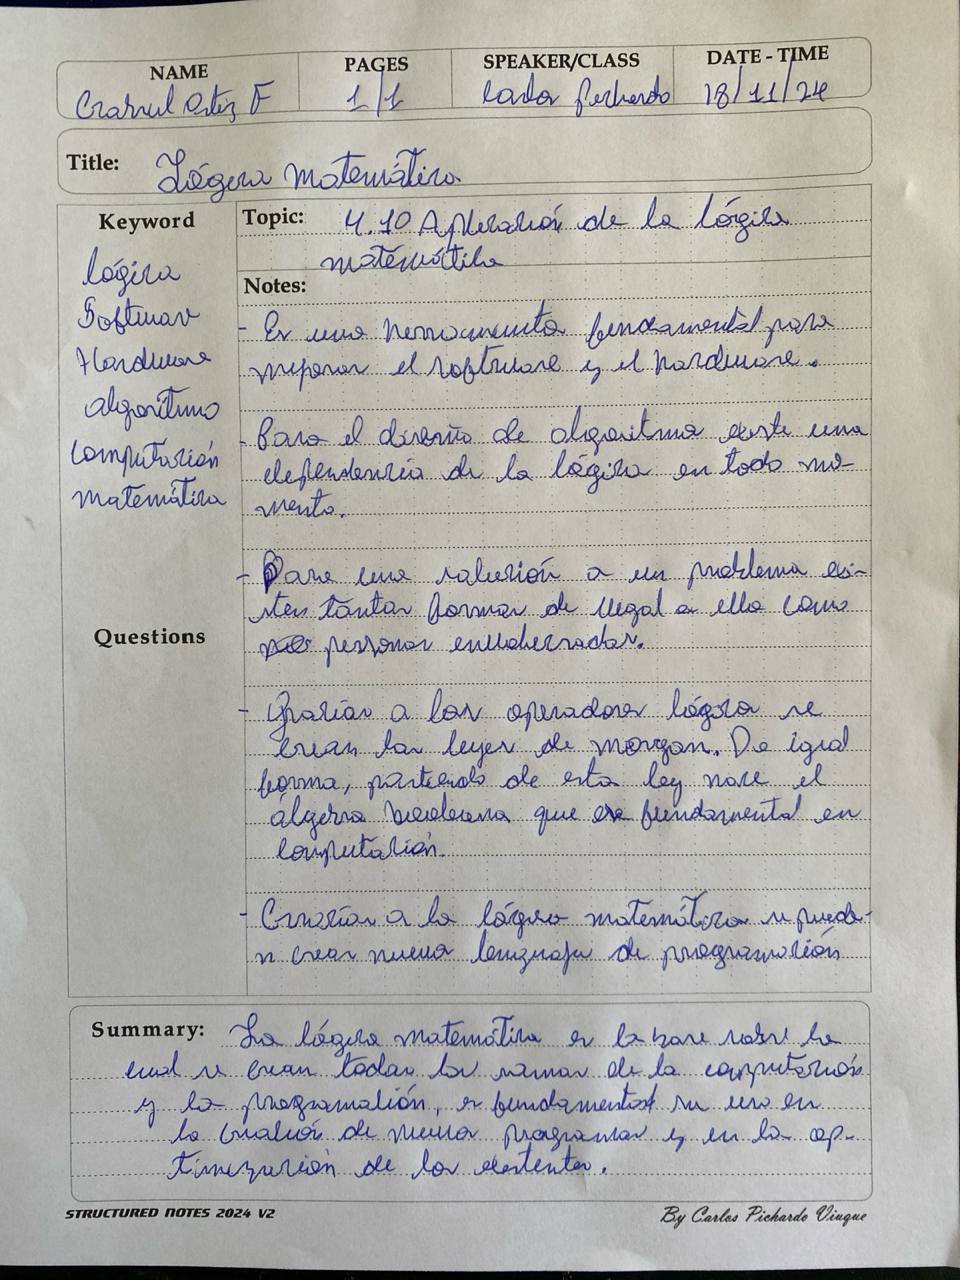 NAME
PAGES
SPEAKER/CLASS
DATE - TIME
Ortiz F
1/1
Carlos Pichardo
18/11/24
Title: Lógica matemática
Keyword
lógica
Software
Hardware
algoritmo
computación
matemática
Questions
Topic: 4.10 Aplicación de la lógica
matemática
Notes:
- Es una herramienta fundamental para
mejorar el software y el hardware.
- Para el diseño de algoritmo existe una
dependencia de la lógica en todo mo-
mento.
- Para una solución a un problema exis-
ten tantas formas de llegar a ella como
personas involucradas.
- Gracias a los operadores lógicos se
crean las leyes de morgan. De igual
forma, partiendo de esta ley nace el
álgebra booleana que es fundamental en
computación.
- Gracias a la lógica matemática se puede-
n crear nuevos lenguajes de programación
Summary: La lógica matemática es la base sobre la
cual se crean todas las ramas de la computación
y la programación, es fundamental su uso en
la creación de nuevos programas y en la op-
timización de los existentes.
STRUCTURED NOTES 2024 V2
By Carlos Pichardo Viuque